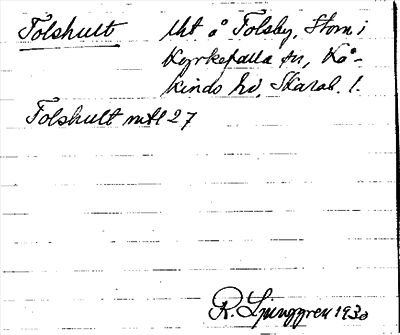 Tolshult
Uht å Tolsby, Stom i
Kyrkefalla sn, Kå-
kinds hd, Skarab. l.
Tolshult mtl 27
R. Ljunggren 1930